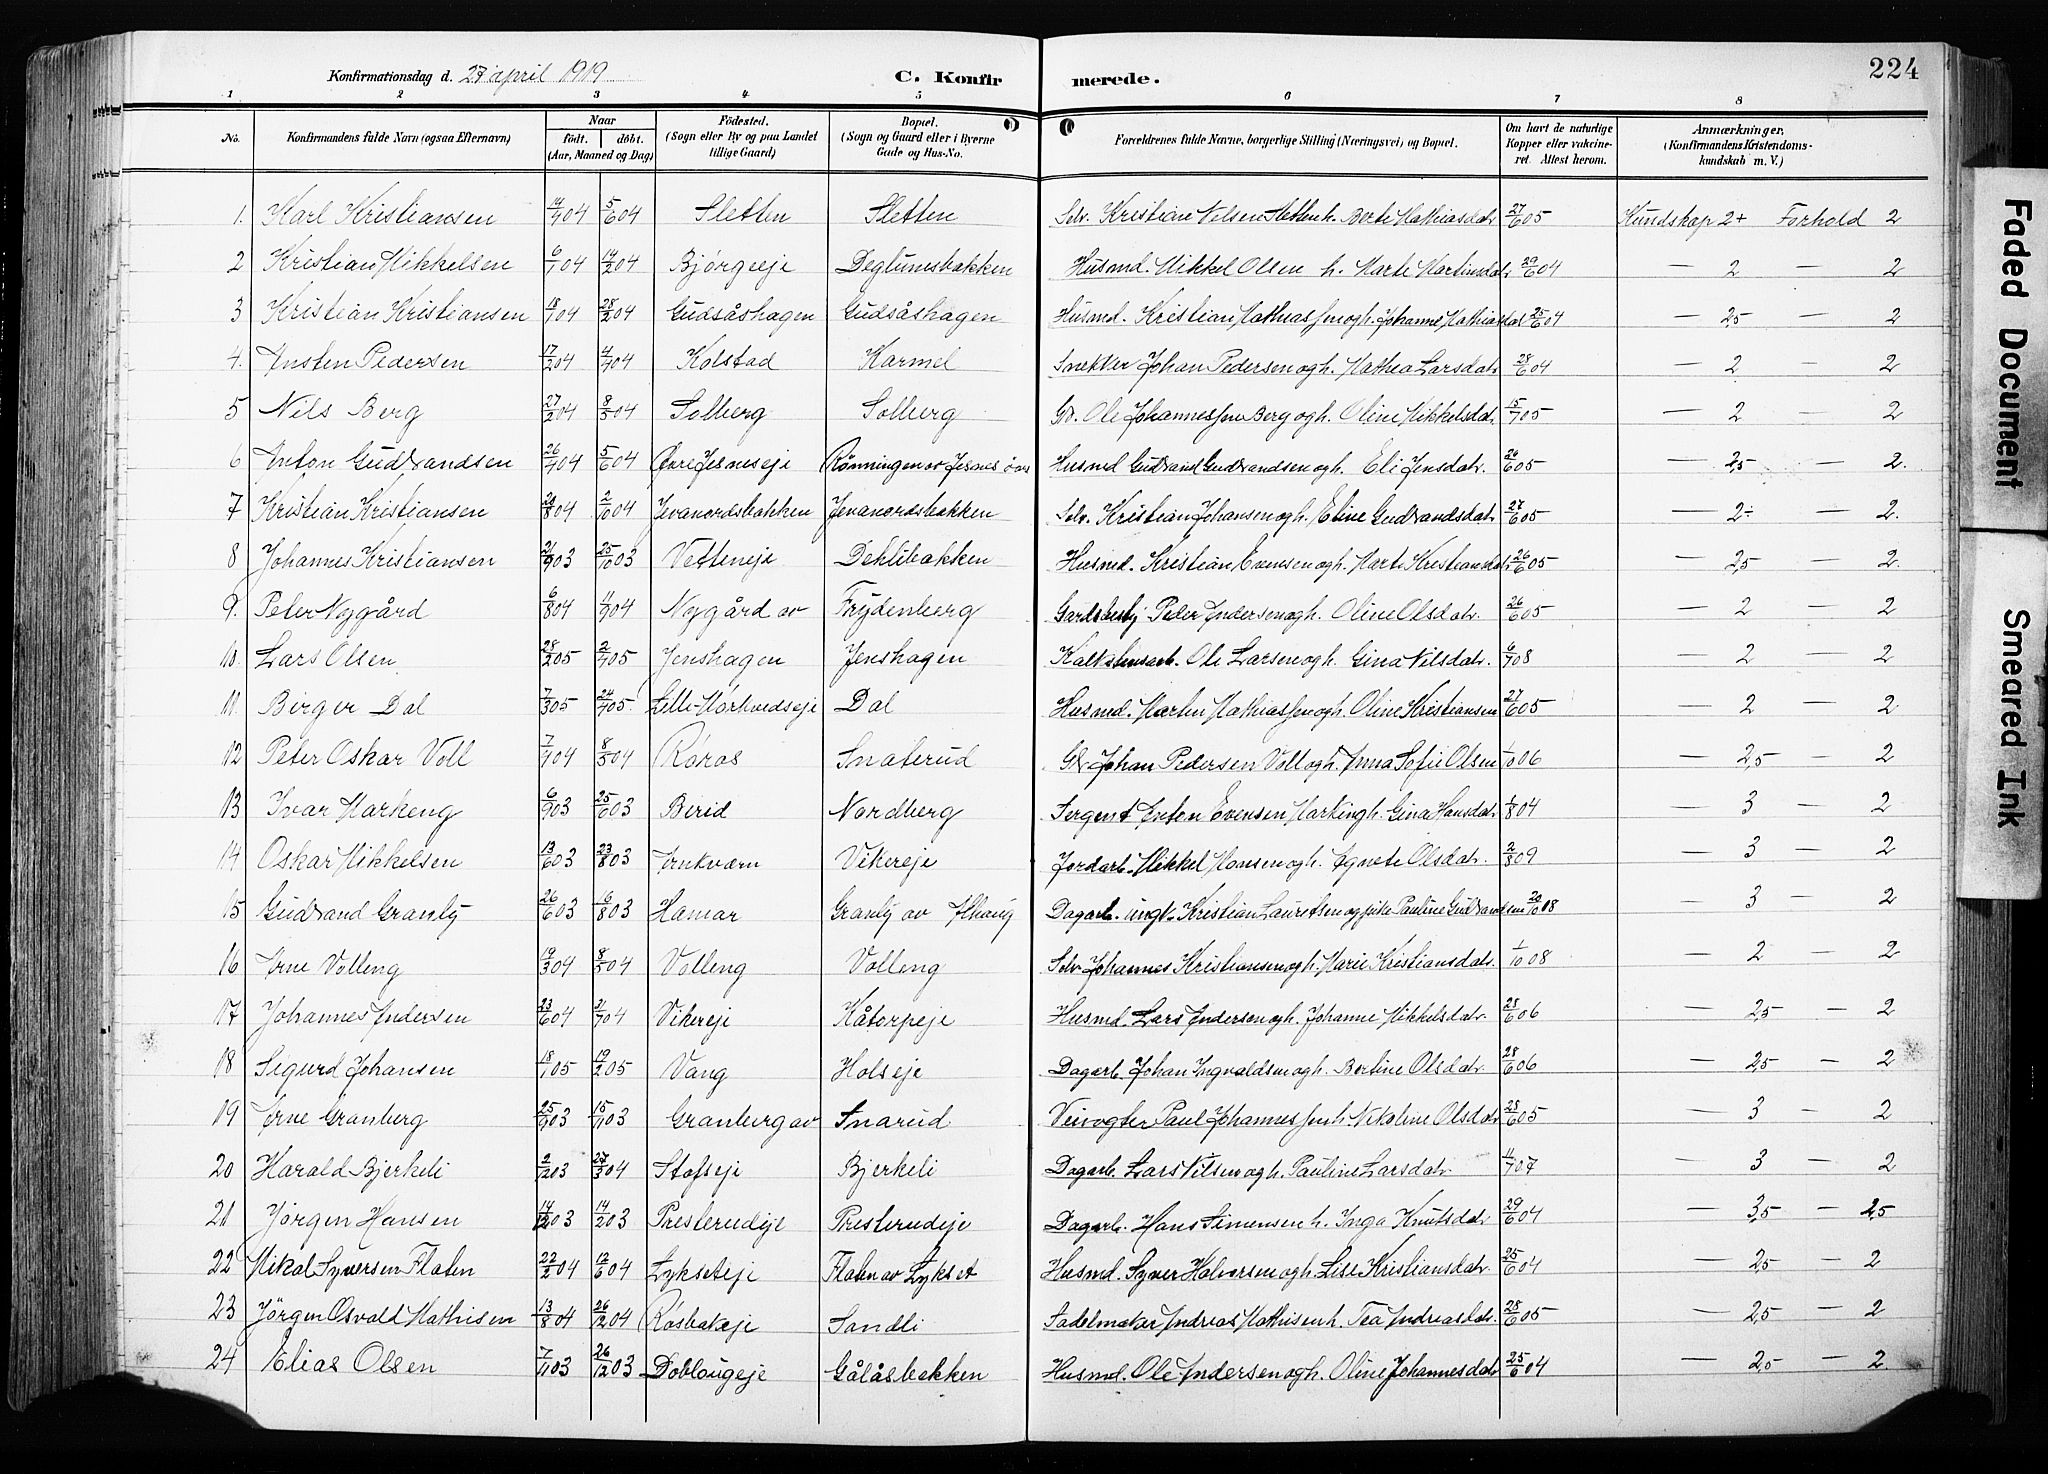 Konfirmationsdag d. 27 april 1919 C. Konfirmerede. 224
1 2 3 4 5 6 7 8
No. Konfirmandens fulde Navn (ogsaa Efternavn) Naar født. døbt. (Aar, Maaned og Dag) Fødested. (Sogn eller By og paa Landet tillige Gaard) Bopæl. (Sogn og Gaard eller i Byerne Gade og Hus-No. Forældrenes fulde Navne, borgerlige Stilling (Næringsvei) og Bopæl. Om havt de naturlige Kopper eller vakcineret. Attest herom. Anmærkninger. (Konfirmandens Kristendomskundskab m. V.)
1. Karl Kristiansen 14/4 04 5/6 04 Sletten Sletten Selv. Kristian Nilsen Sletten h. Berte Mathiasdat. 27/6 05 Kundskap 2+ Forhold 2
2 Kristian Mikkelsen 6/1 04 14/2 04 Bjørgeeje Deglumsbakken Husmd. Mikkel Olsen h. Marte Martinsdat. 29/6 04 — 2 — 2
3 Kristian Kristiansen 18/1 04 28/2 04 Gudsåshagen Gudsåshagen Husmd. Kristian Mathiassen og h. Johanne Mathiasdat 25/6 04 — 2,5 — 2
4. Ansten Pedersen 17/2 04 4/4 04 Kolstad Karmel Snekker Johan Pedersen og h. Mathea Larsdat. 28/6 04 — 2 — 2
5 Nils Berg 27/2 04 8/5 04 Solberg Solberg Gb. Ole Johannessen Berg og h. Oline Mikkelsdat. 15/7 05 — 2 — 2
6 Anton Gudbrandsen 26/4 04 5/6 04 Øvre Jesneseje Rønningen av Jesnes Husmd Gudbrand Gudbrandsen og h. Eli Jensdat. 26/6 05 — 2,5 — 2.
7 Kristian Kristiansen 20/8 04 2/10 04 Jevanordsbakken Jevanordsbakken Selv. Kristian Johansen og h. Eline Gudbrandsdat. 27/6 05 — 2÷ — 2.
8 Johannes Kristiansen 21/9 03 25/10 03 Vetteneje Dehlibakken Husmd. Kristian Evensen og h. Marte Kristiansdat. 26/6 05 — 2,5 — 2.
9. Peter Nygård 6/8 04 11/9 04 Nygård av Frydenberg Peder Andersen og h. Oline Olsdat. 26/6 05 — 2 — 2
10. Lars Olsen 28/2 05 2/4 05 Jenshagen Jenshagen Ole Larsen og h. Gina Nilsdat. 6/7 08 — 2 — 2
11. Birger Dal 7/3 05 24/4 05. Lille-Mørkvedseje Dal Husmd. Martin Mathiassen og h. Oline Kristiansen 27/6 05 — 2 — 2
12 Peter Oskar Voll 7/4 04 8/5 04 Røros Snaterud Gb. Johan Pedersen Voll og h. Anna Sofie Olsen 1/10 06 — 2,5 — 2
13 Ivar Markeng 6/9 03 25/6 03 Birid Nordberg Sergent Anton Evensen Markeng h. Gina Hansdat. 1/8 04 — 3 — 2
14 Oskar Mikkelsen 13/6 03 23/8 03 Ankværn Vikereje Jordarb. Mikkel Hansen og h. Agnete Olsdat. 2/8 09 — 3 — 2
15 Gudbrand Granly 26/6 03 16/8 03 Hamar Granly av Ilhaug Dagarb. ungk. Kristian Lauretsen og pike Pauline Gudbrandsen 20/10 08 — 3 — 2
16 Arne Volleng 19/3 04 8/5 04 Volleng Volleng Selv. Johannes Kristiansen og h. Marie Kristiansdat. 1/10 08 — 2 — 2
17. Johannes Andersen 23/6 04 21/7 04 Vikereje Kåtorpeje Husmd. Lars Andersen og h. Johanne Mikkelsdat. 28/6 06 — 2,5 — 2
18 Sigurd Johansen 18/1 05 19/2 05 Vang Holseje Dagarb. Johan Ingvaldsen og h. Bertine Olsdat. 28/6 06 — 2,5 — 2
19 Arne Granberg 25/9 03 15/11 03 Granberg av Snarud Veivogter Paul Johannessen h. Nikoline Olsdat. 28/6 05 — 3 — 2
20 Harald Bjerkeli 2/12 03 27/3 04 Stofseje Bjerkeli Dagarb. Lars Nilsen og h. Pauline Larsdat. 11/7 07 — 3 — 2
21 Jørgen Hansen 14/12 03 14/2 03 Presterudeje Presterudeje Dagarb. Hans Simensen h. Inga Knutsdat. 29/6 04 — 3,5 — 2,5
22 Mikal Syversen Flaten 22/2 04 12/6 04 Lykseteje Flaten av Lykset Husmd. Syver Halvorsen og h. Lise Kristiansdat. 25/6 04 — 2,5 — 2
23 Jørgen Osvald Mathisen 13/8 04 26/12 04 Røsbakeje Sandli Sadelmaker Andreas Mathisen h. Tea Andreasdat. 28/6 05 — 2,5 — 2
24 Elias Olsen 7/11 03 26/12 03 Doblougeje Gålåsbakken Husmd. Ole Andersen og h. Oline Johannesdat. 25/6 04 — 2,5 — 2
Faded Document
Smeared Ink